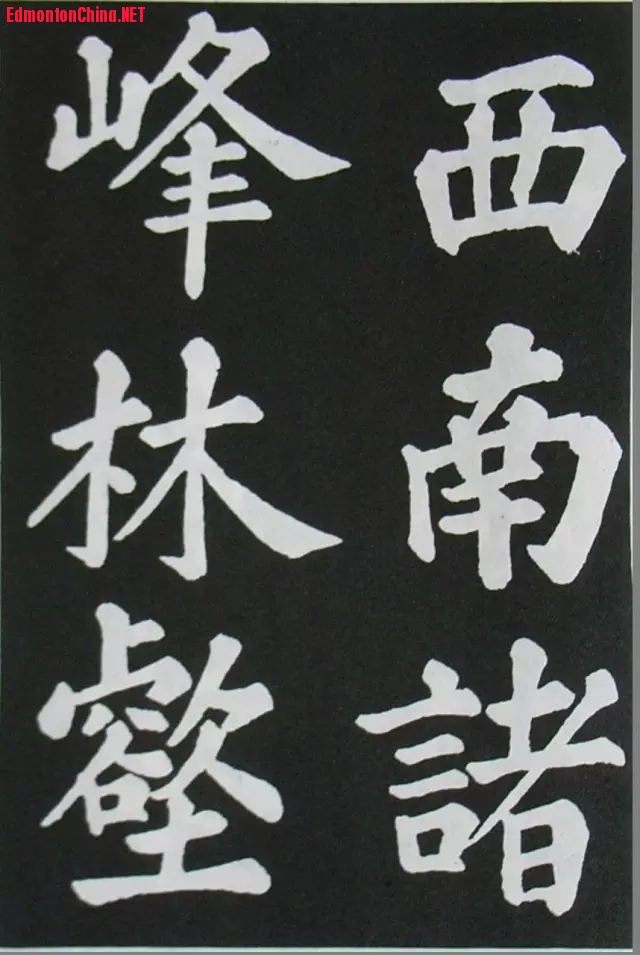 EdmontonChina.NET
西南諸
峰林壑